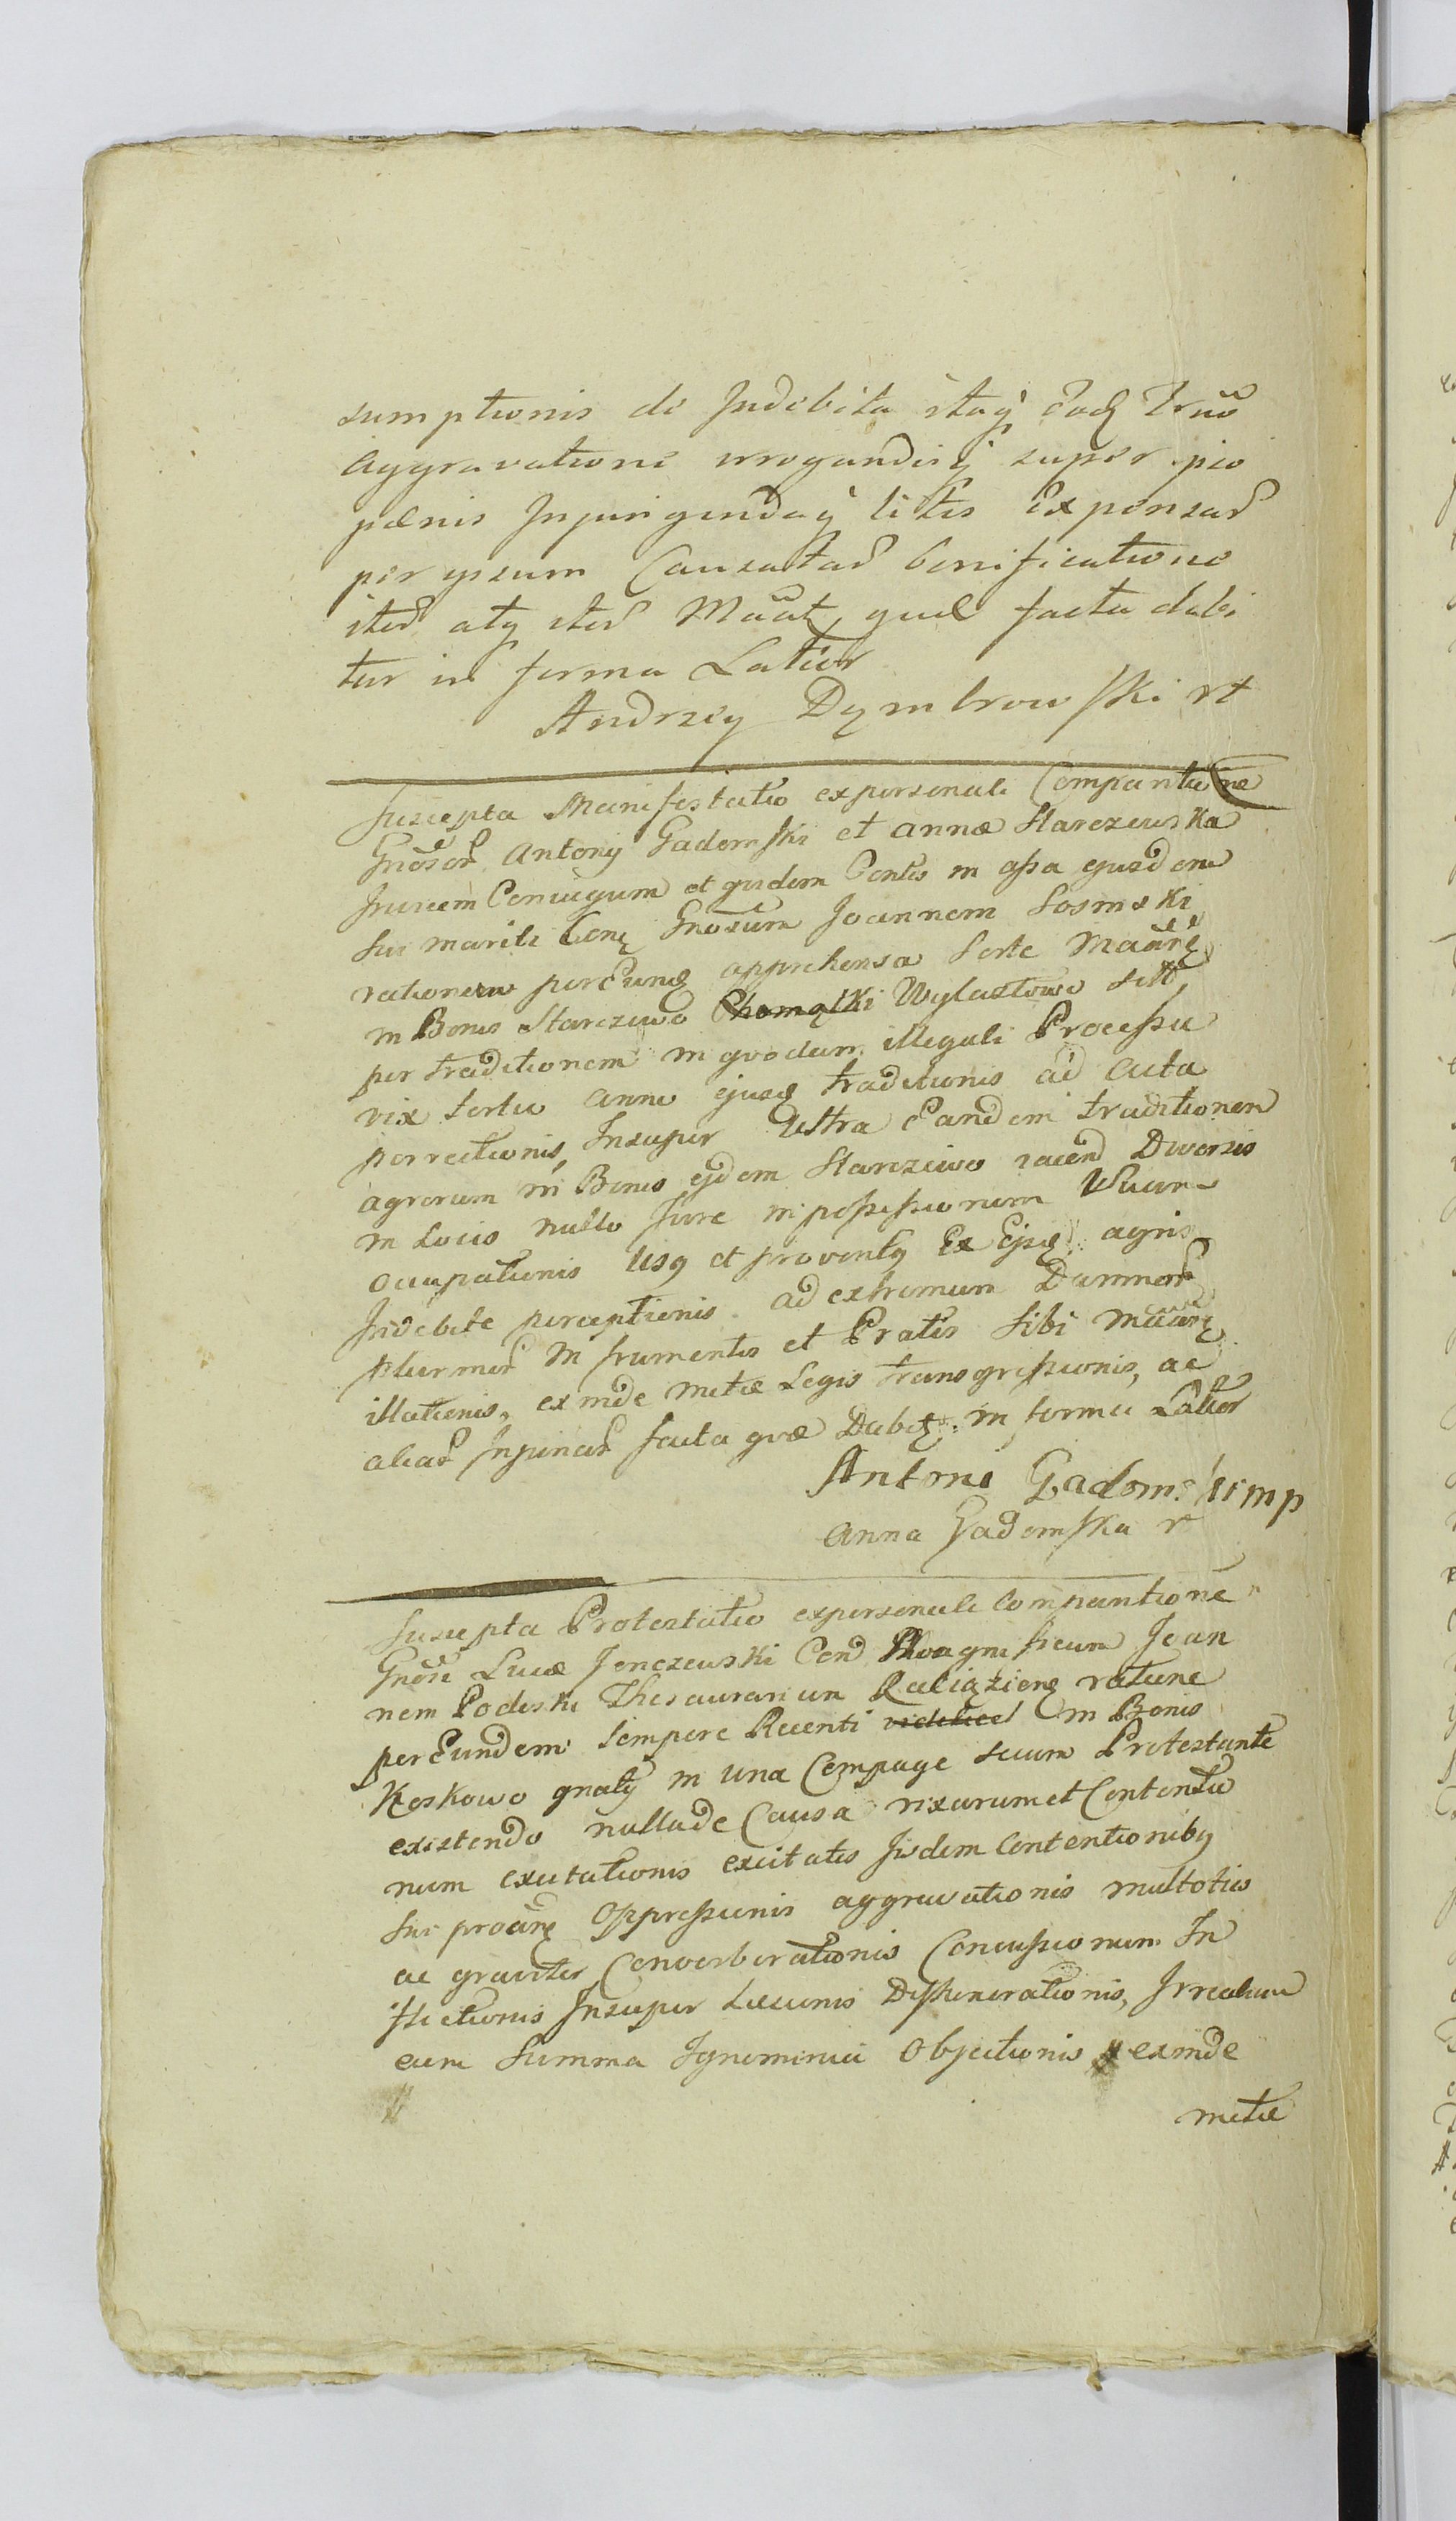 sumptionis de Indebita itaq eodq
Aggravatione irrogandisq super pio
pœnis Injungendaq litis Expensar
per ipsum Causatar bonificatione
iter atq iter Maât, quæ facta dabi
tur in forma Latior
Andrzey Dymbrowski
Suscepta Manifestatio ex personali Comparitione
Gnosor Antonij Gadomski et Annæ Starczewska
Invicem Coniugum et quidem Contis in assa ejusdem
sui mariti Conq Gnosum Joannem Sosinski
rationem per Eundq apprehensa Sorte Maârq
in Bonis Starczewo Chomątki Wylaztowo
per traditionem in quodam illegali Processu
vix tertio anno ejusq traditionis ad Acta
porrectionis, Insuper Ultra Eandem traditionem
agrorum in Bonis ejdem Starczewo jacend Diversis
in Locis nullo Jure in possessionem Suam
ocupationis Usq et proventq Ex Ejsq agris
Indebite perceptionis ad extremum Damnor
plurimor in frumentis et Pratis Sibi Maârq
illationis, exinde metæ Legis transgressionis, ac
aliar Injuriar facta quæ Dabitq in forma Latior
Antoni Gadomski mp
Anna Gadomska
Suscepta Protestatio ex personali Comparitione
Gnosi Lucæ Jonczewski Con Magnificum Joan
nem Podoski Thesaurarium Rationę
per Eundem tempore Recenti videlicet in Bonis
Koskowo gnatq in una Compage secum Protestante
existendo nullade Causa rixarum et Contentio
num excitationis excitatis Iisdem Contentionibq
sui proârq Oppressionis aggravationis multoties
ac graviter Converberationis Concussionum In
flictionis Insuper Læsionis Dishonorationis,
cum Summa Ignominia Objectionis exinde
metæ